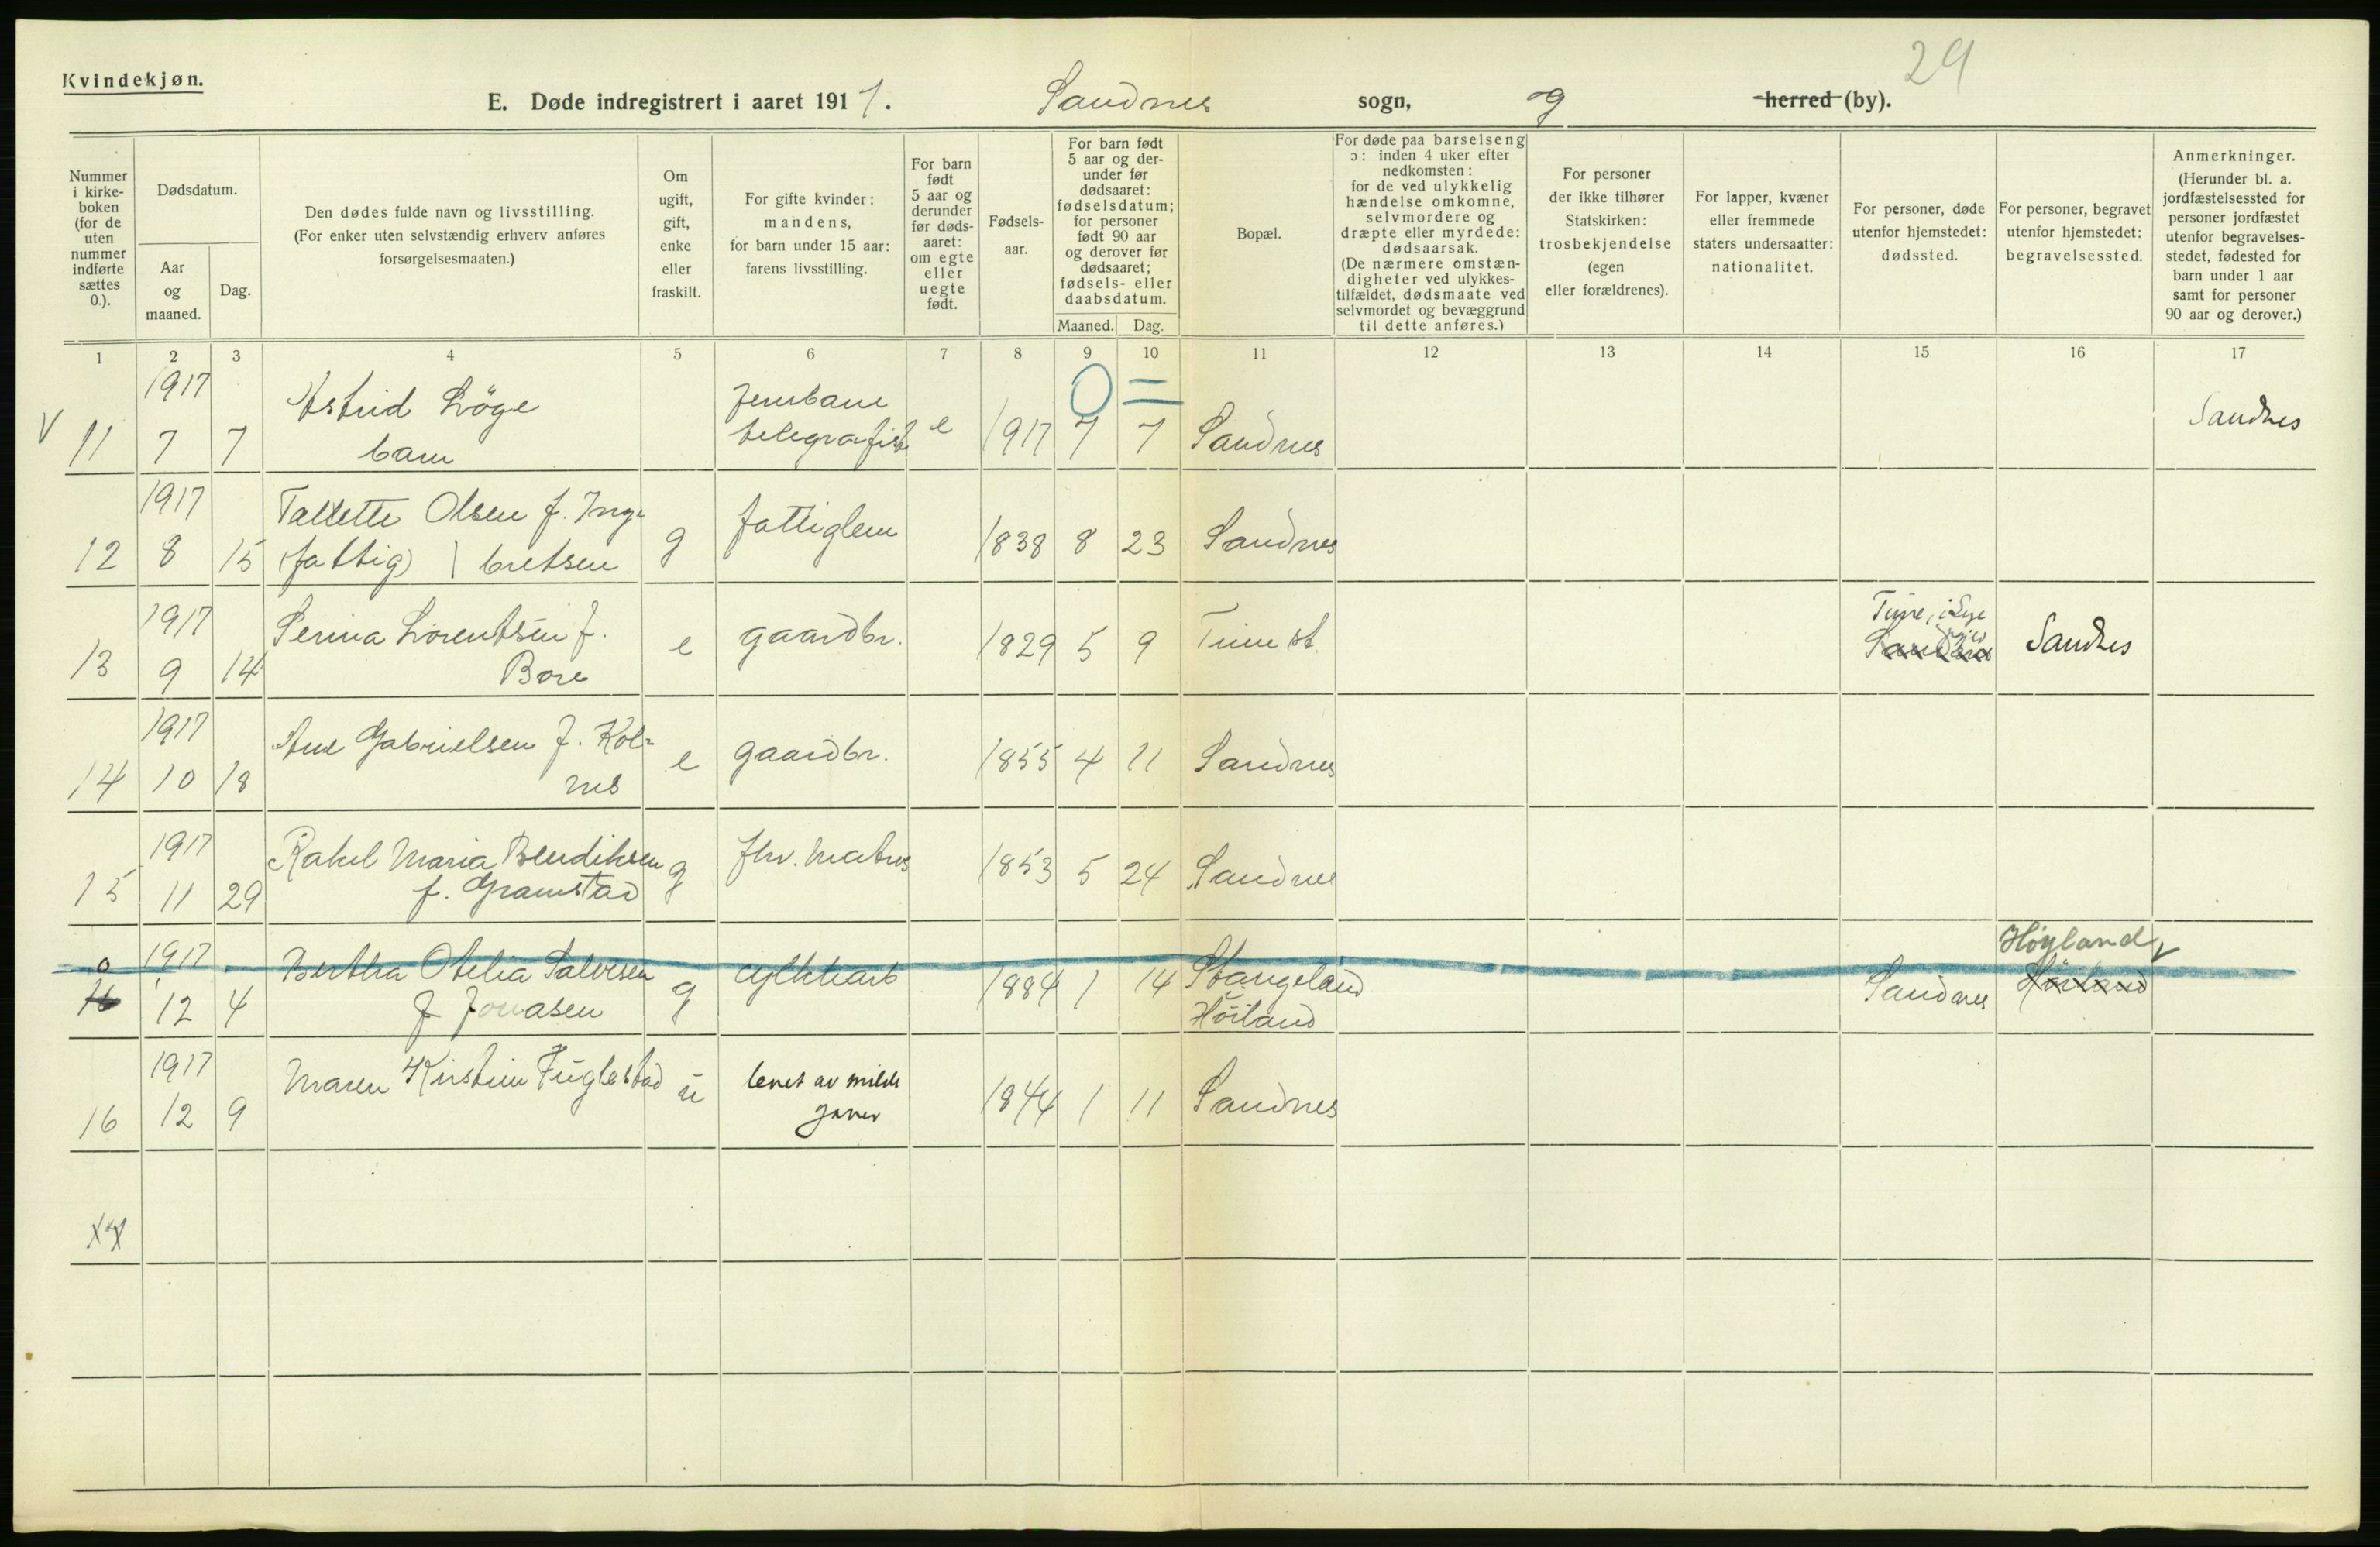 29
Kvindekjøn.
E. Døde indregistrert i aaret 1917. Sandnes sogn, og herred (by).
Nummer i kirke- boken (for de uten nummer indførte sættes 0.).
Dødsdatum.
Aar og maaned.
Dag.
Den dødes fulde navn og livsstilling.
(For enker uten selvstændig erhverv anføres
forsørgelsesmaaten.)
Om ugift, gift, enke eller fraskilt.
For gifte kvinder: mandens, for barn under 15 aar: farens livsstilling.
For barn født 5 aar og derunder før døds- aaret: om egte eller uegte født.
Fødsels- aar.
For barn født 5 aar og der- under før dødsaaret: fødselsdatum; for personer født 90 aar og derover før dødsaaret; fødsels- eller daabsdatum.
Maaned. Dag.
Bopæl.
For døde paa barselseng ɔ: inden 4 uker efter nedkomsten: for de ved ulykkelig hændelse omkomne, selvmordere og dræpte eller myrdede: dødsaarsak. (De nærmere omstæn- digheter ved ulykkes- tilfældet, dødsmaate ved selvmordet og bevæggrund til dette anføres.)
For personer der ikke tilhører Statskirken: trosbekjendelse (egen eller forældrenes).
For lapper, kvæner eller fremmede staters undersaatter: nationalitet.
For personer, døde utenfor hjemstedet: dødssted.
For personer, begravet utenfor hjemstedet: begravelsessted.
Anmerkninger. (Herunder bl. a. jordfæstelsessted for personer jordfæstet utenfor begravelses- stedet, fødested for barn under 1 aar samt for personer 90 aar og derover.)
1 2 3 4 5 6 7 8 9 10 11 12 13 14 15 16 17
1917 Astrid Løge Jernbane 0 =
V 11 7 7 barn telegrafist e 1917 7 7 Sandnes Sandnes
1917 Tallette Olsen f. Inge
12 8 15 (fattig) | bretsen g fattiglem 1838 8 23 Sandnes
1917 Serina Lorentsen f. Time, i Lye
13 9 14 Bore e gaardbr. 1829 5 9 Time st. Sandnes Sandnes
1917 Ane Gabrielsen f. Kol-
14 10 18 nes e gaardbr. 1855 4 11 Sandnes
1917 Rakel Maria Bendiksen
15 11 29 f. Gramstad g fhv. Matros 1853 5 24 Sandnes
0 1917 Bertha Otelia Salvesen cykkelarb Stangeland Høyland V
16 12 4 f Jonasen g 1884 1 14 Høiland Sandnes Høiland
1917 Maren Kirstine Fuglestad levet av milde
16 12 9 u gaver 1844 1 11 Sandnes
17